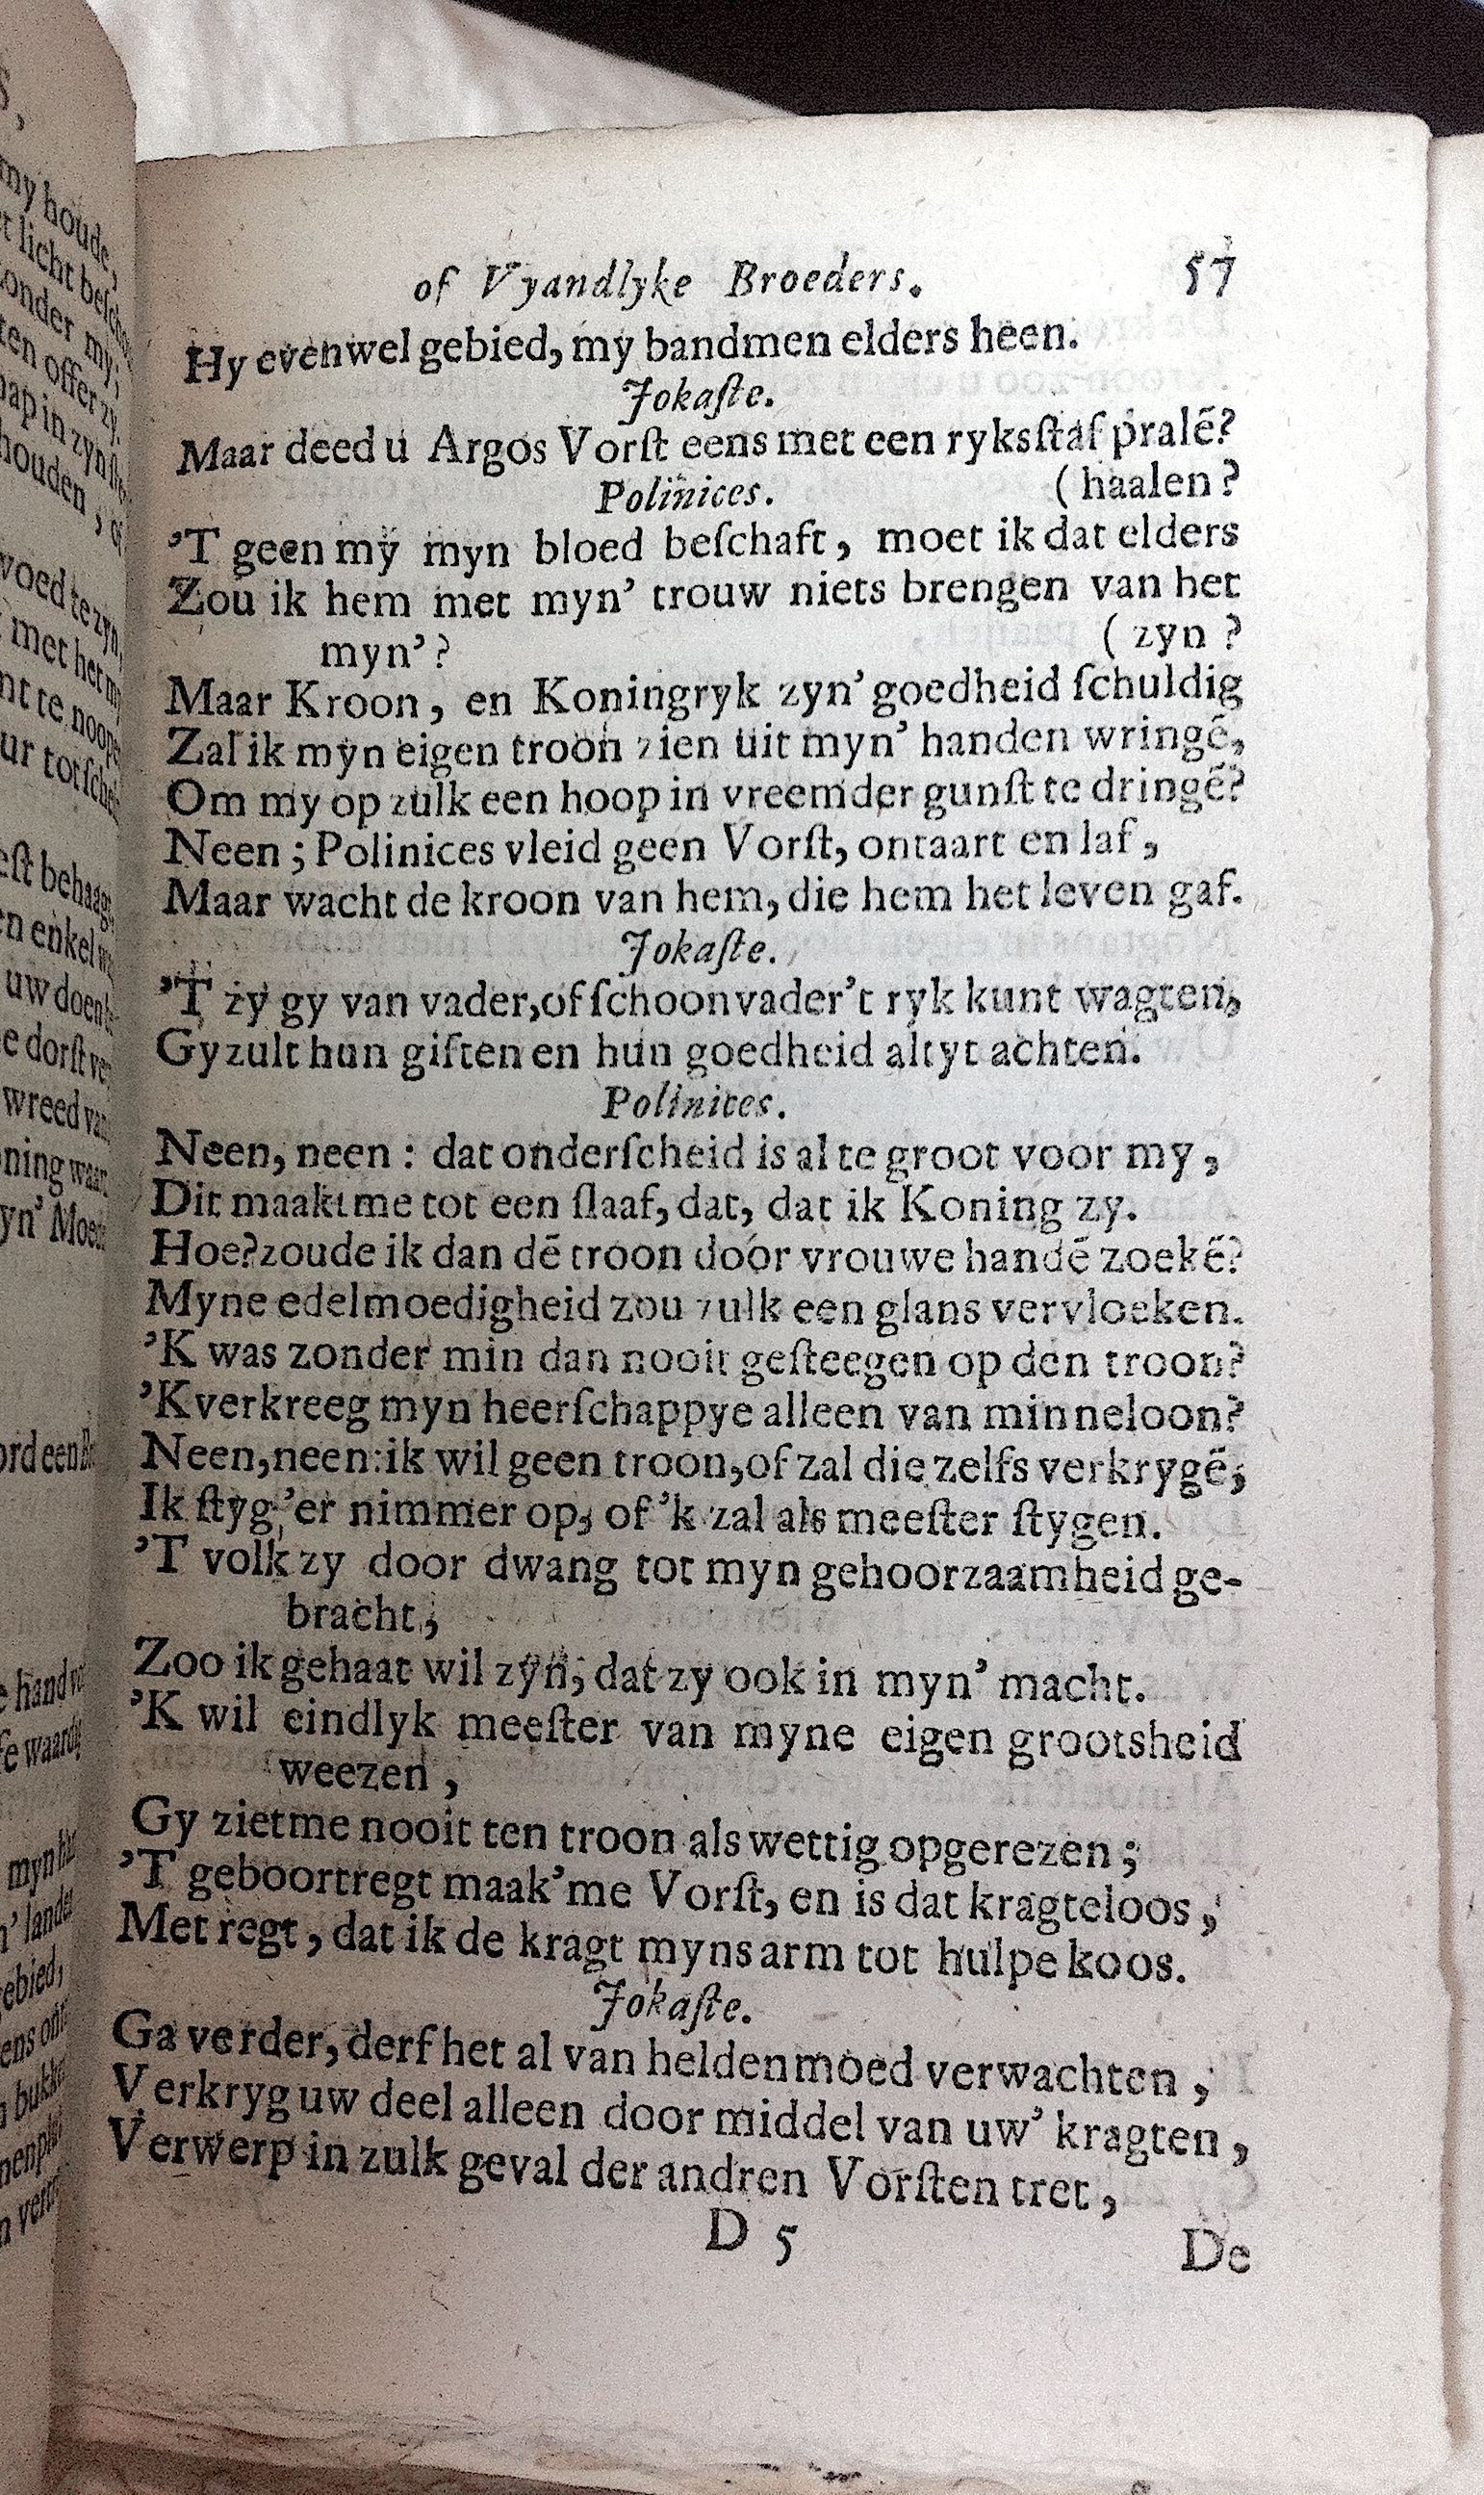 of Vyandlyke Broeders. 57
Hy evenwel gebied, my bandmen elders heen.
Jokaſte.
Maar deed u Argos Vorſt eens met een ryksſtaf pralē?
Polinices. (haalen?
'T geen my myn bloed beſchaft, moet ik dat elders
Zou ik hem met myn' trouw niets brengen van het
myn'? (zyn?
Maar Kroon, en Koningryk zyn' goedheid ſchuldig
Zal ik myn eigen troon zien uit myn' handen wringē,
Om my op zulk een hoop in vreemder gunſt te dringē?
Neen; Polinices vleid geen Vorſt, ontaart en laf,
Maar wacht de kroon van hem, die hem het leven gaf.
Jokaſte.
'T zy gy van vader, of ſchoonvader't ryk kunt wagten,
Gy zult hun giften en hun goedheid altyt achten.
Polinices.
Neen, neen: dat onderſcheid is al te groot voor my,
Dit maakt me tot een ſlaaf, dat, dat ik Koning zy.
Hoe? zoude ik dan dē troon door vrouwe handē zoekē?
Myne edelmoedigheid zou zulk een glans vervloeken.
'K was zonder min dan nooit geſteegen op den troon?
'K verkreeg myn heerſchappye alleen van minneloon?
Neen, neen: ik wil geen troon, of zal die zelfs verkrygē;
Ik ſtyg'er nimmer op, of 'k zal als meeſter ſtygen.
'T volk zy door dwang tot myn gehoorzaamheid ge-
bracht;
Zoo ik gehaat wil zyn; dat zy ook in myn' macht.
'K wil eindlyk meeſter van myne eigen grootsheid
weezen,
Gy ziet me nooit ten troon als wettig opgerezen;
'T geboortregt maak'me Vorſt, en is dat kragteloos,
Met regt, dat ik de kragt myns arm tot hulpe koos.
Jokaſte.
Ga verder, derf het al van heldenmoed verwachten,
Verkryg uw deel alleen door middel van uw' kragten,
Verwerp in zulk geval der andren Vorſten tret,
D 5 De